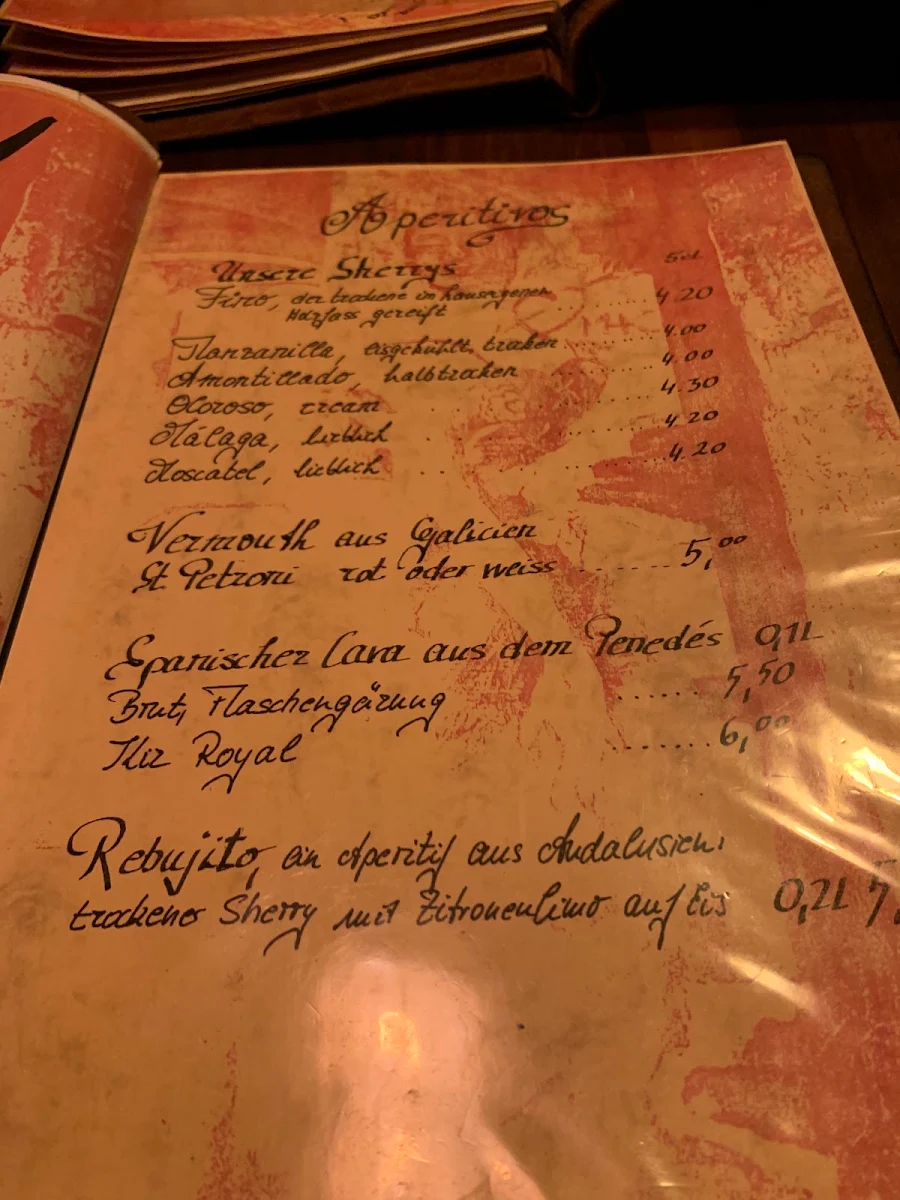 Aperitivos
Unsere Sherrys 5cl
Fino, der trockene im hauseigenen ........ 4.20
Holzfass gereift
Manzanilla, eisgekühlt, trocken ........ 4.00
Amontillado, halbtrocken ........ 4.00
Oloroso, cream ........ 4.30
Málaga, lieblich ........ 4.20
Moscatel, lieblich ........ 4.20
Vermouth aus Galicien
St. Petroni rot oder weiss ........ 5,00
Spanischer Cava aus dem Penedés 0,1L
Brut, Flaschengärung ...... 5,50
Kir Royal ....... 6,00
Rebujito, ein Aperitif aus Andalusien:
trockener Sherry mit Zitronenlimo auf Eis 0,2L